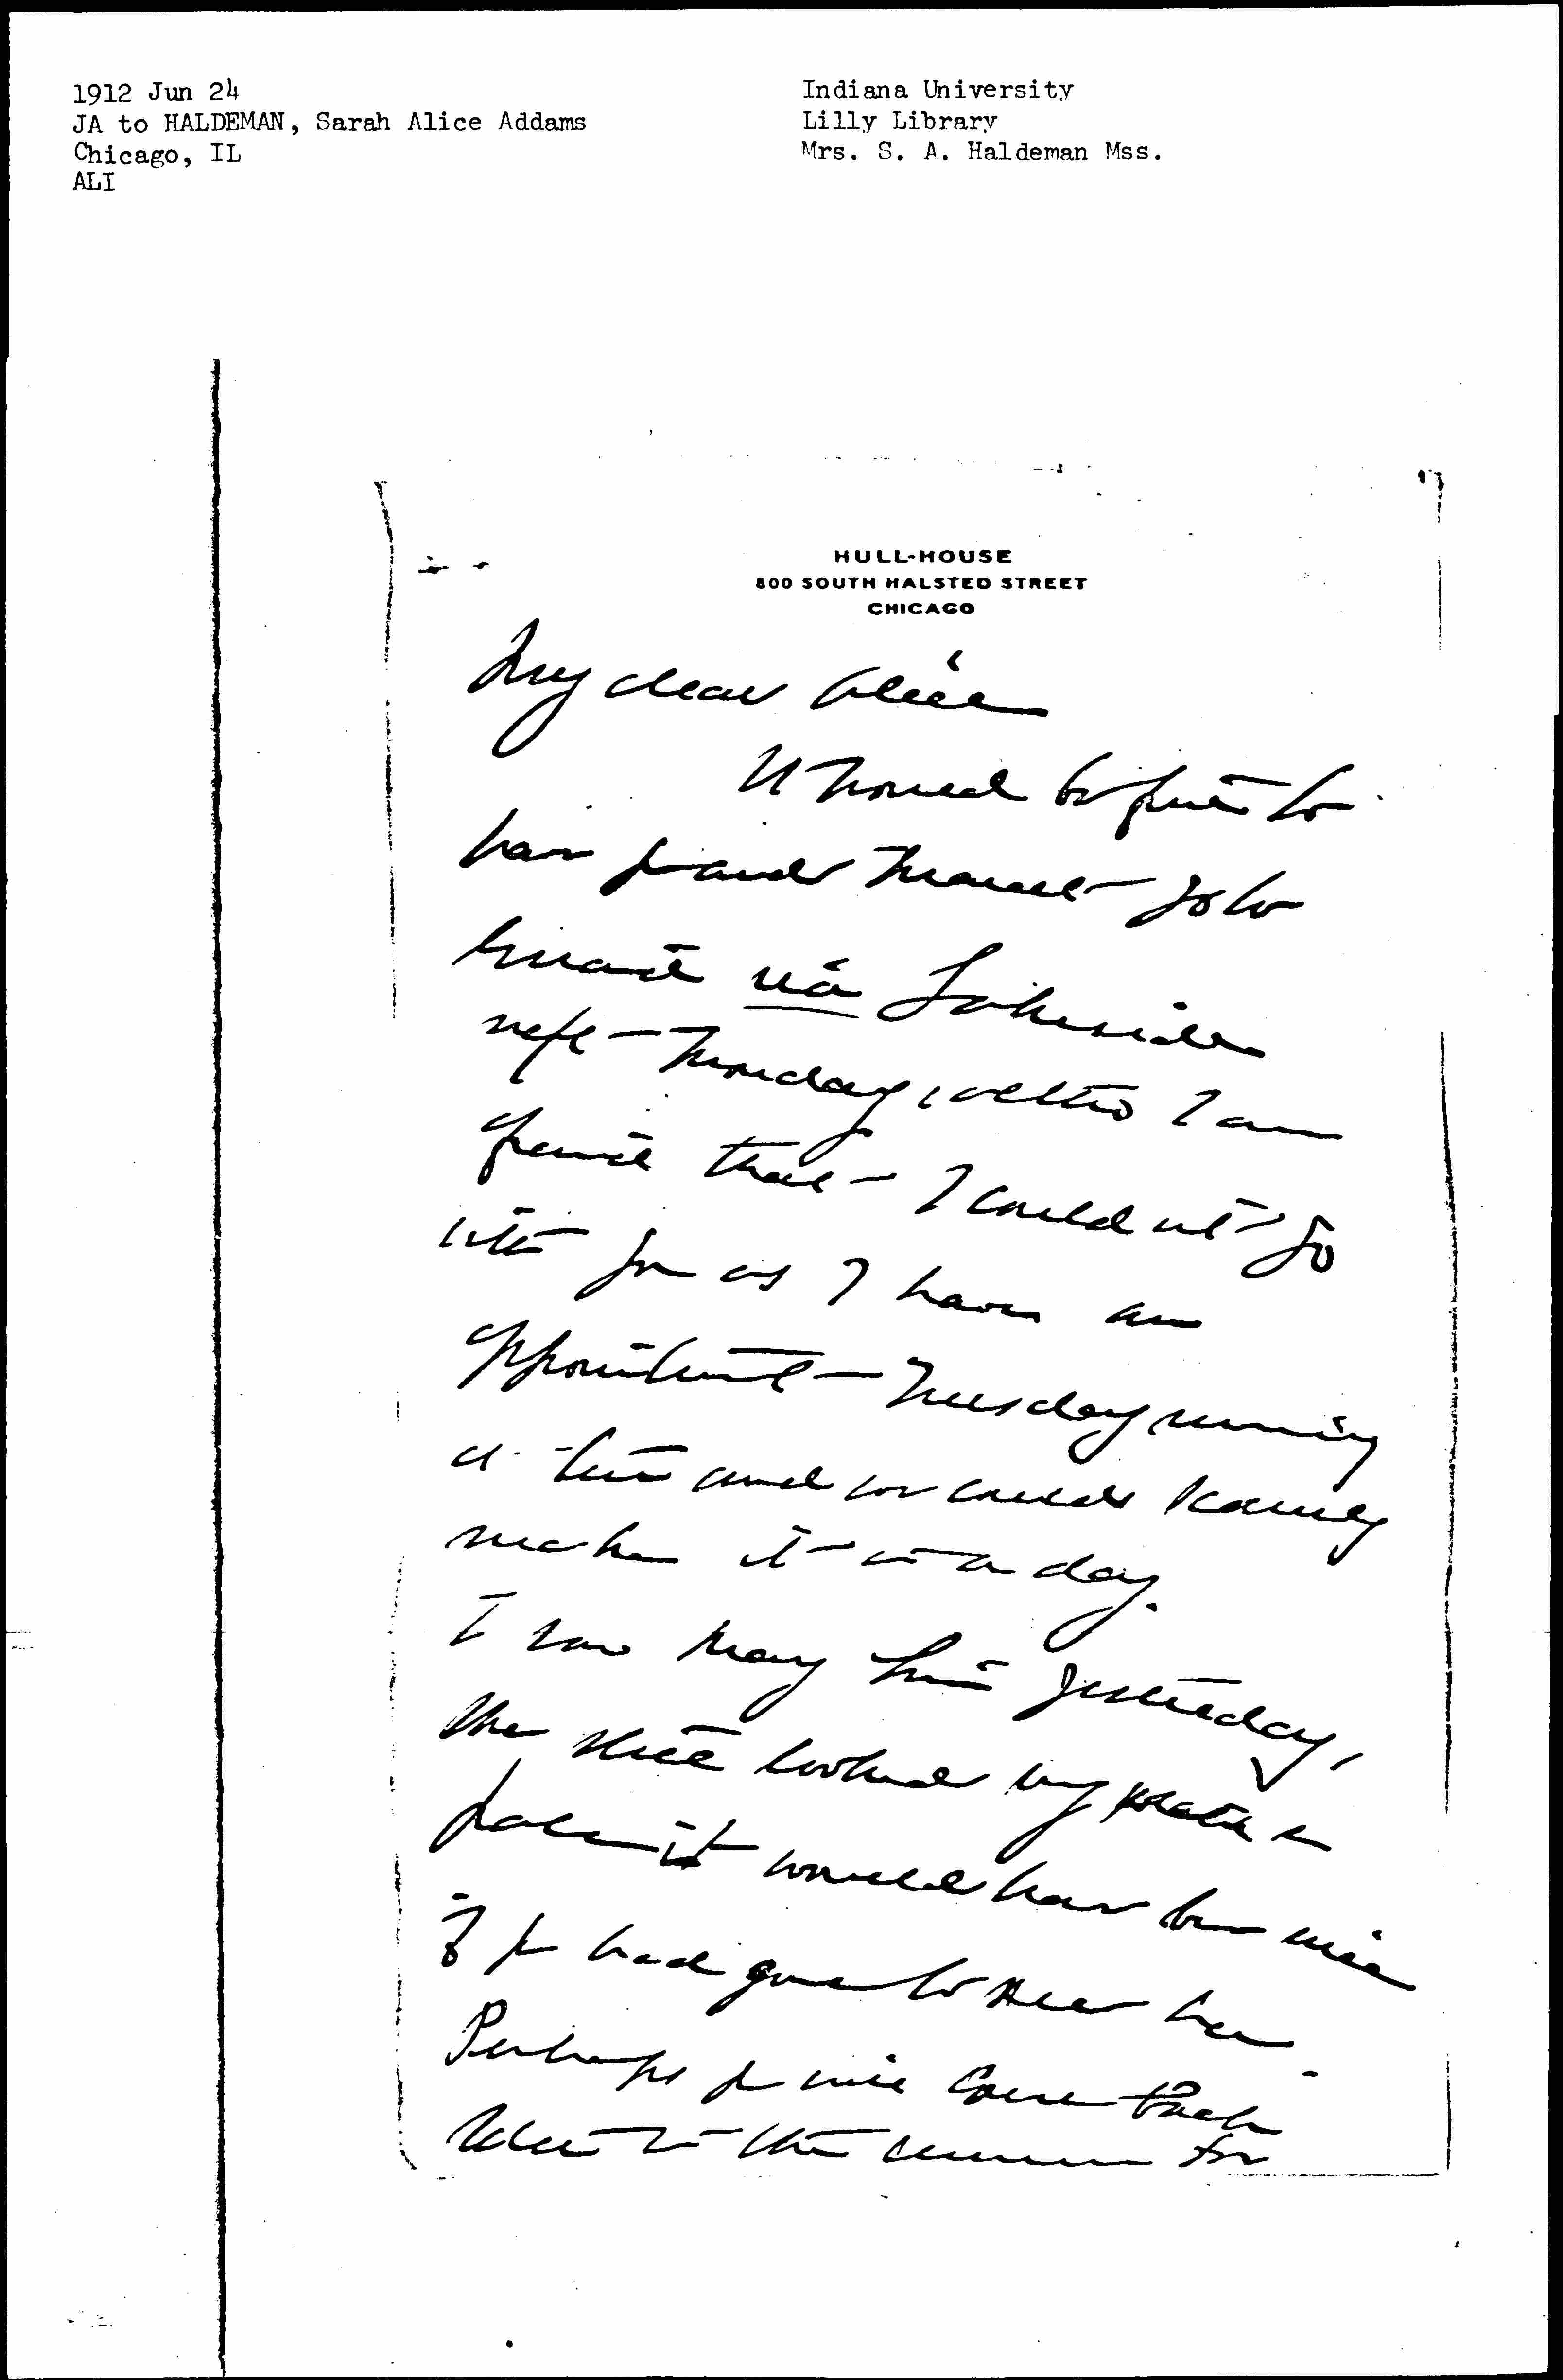 1912 Jun 24
JA to HALDEMAN, Sarah Alice Addams
Chicago, IL
ALI
Indiana University
Lilly Library
Mrs. S. A. Haldeman Mss.
HULL-HOUSE
800 SOUTH HALSTED STREET
CHICAGO
My dear Alice
It would be fine to
have you and Marcet go to
via Lakeside
next Monday, altho I am
afraid that I could not go
with you as I have an
appointment Tuesday morning
at ten and we could scarcely
make it in a day.
I saw Mary yesterday,
She still looked very
pale it would have been nice
if you had gone to see her.
Perhaps you will come back
later in the summer for